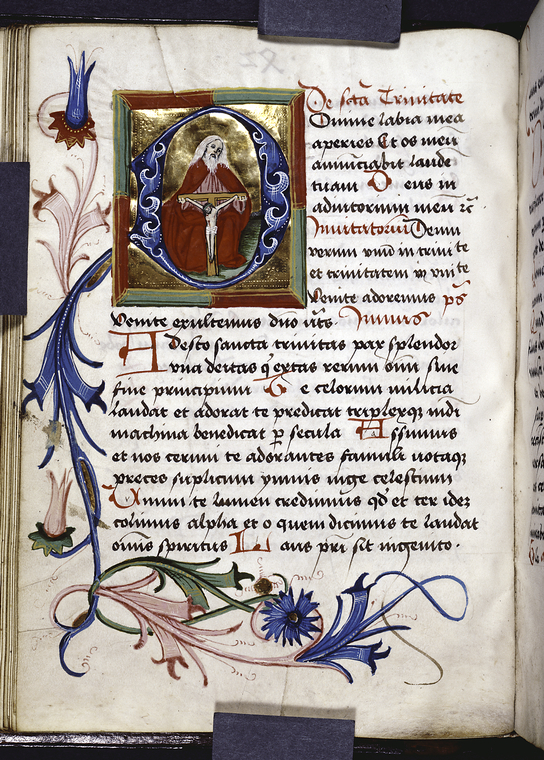 De scta Trinitate
Omine labia mea
aperies Et os meu
annuciabit laude
tuam Deus in
adiutorium meu
Inuitatoriu Deum
verum vnu in trinite
et trinitatem in vnite
Venite adoremus ps
Venite exultemus dno
Adesto sancta trinitas par splendor
vna deitas q extas rerum oim sine
fine principium Te celorum militia
laudat et adorat te predicat triplexq mdi
machina benedicat p secula Assumus
et nos cernui te adorantes famuli uotaq
preces suplicum ymnis iunge celestium
Vnum te lumen credimus qd et ter idez
colimus alpha et o quem dicimus te laudat
omis spiritus Laus pri sit ingenito.